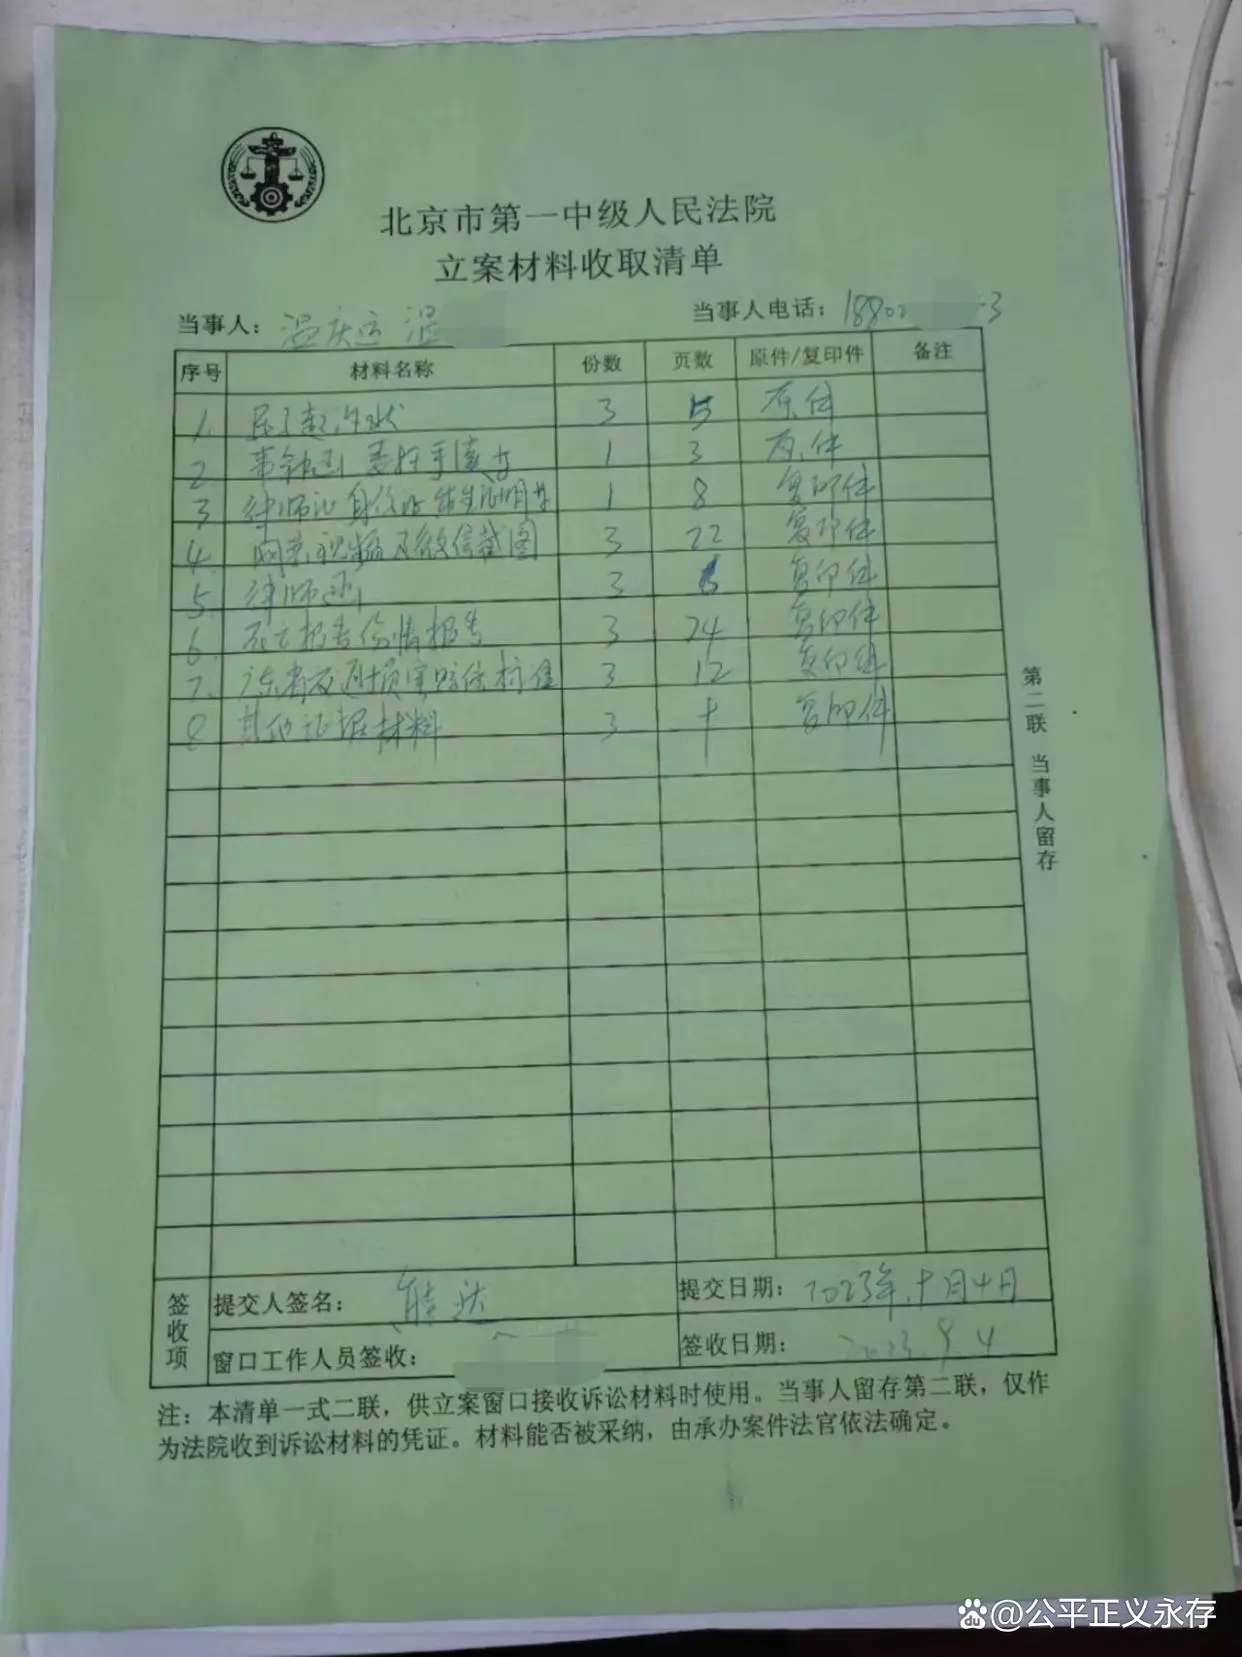 北京市第一中级人民法院
立案材料收取清单
当事人： 温庆运 温 当事人电话：18800 3
序号 材料名称 份数 页数 原件/复印件 备注
1. 民事起诉状 3 5 原件
2 事务所函 委托手续 1 3 原件
3 律师证 身份证 出生证明 1 8 复印件
4. 网页视频及微信截图 3 22 复印件
5. 律师函 3 复印件
6. 死亡报告 伤情报告 3 24 复印件
7. 广东省交通损害赔偿标准 3 12 复印件
8 其他证据材料 3 复印件
第二联 当事人留存
签收项
提交人签名： 熊达 提交日期： 2023年.十月4日
窗口工作人员签收： 签收日期： 2023.9.4
注：本清单一式二联，供立案窗口接收诉讼材料时使用。当事人留存第二联，仅作
为法院收到诉讼材料的凭证。材料能否被采纳，由承办案件法官依法确定。
@公平正义永存